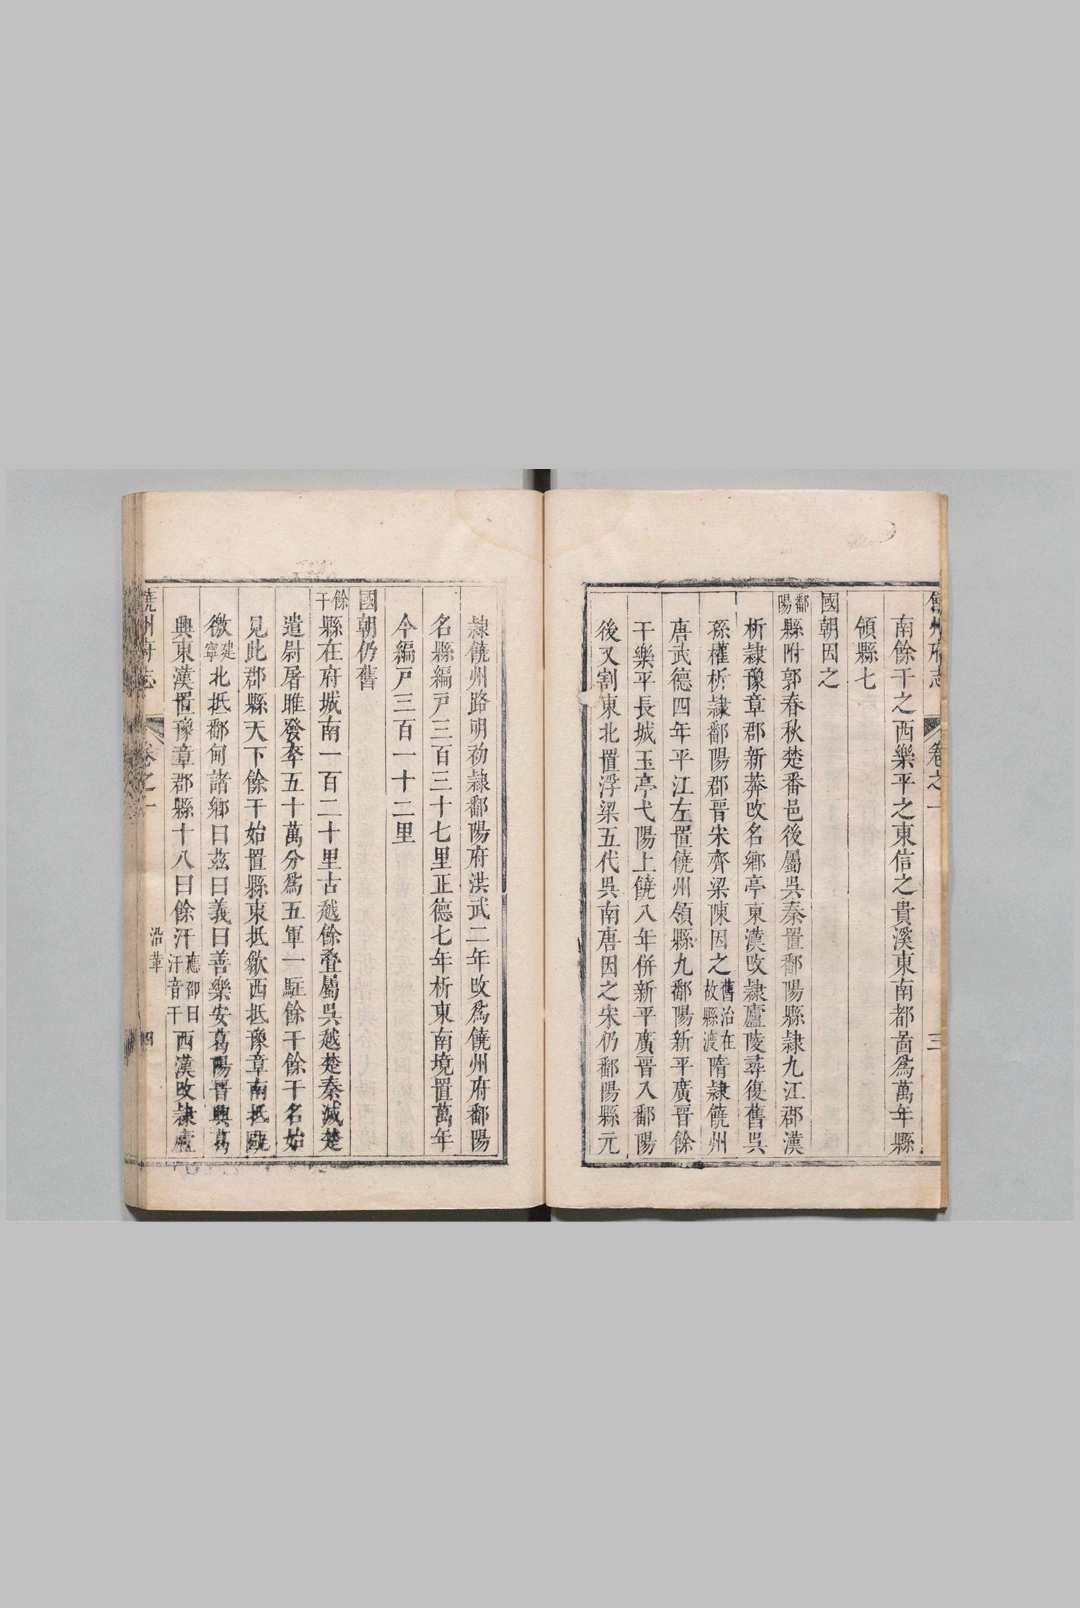 州府志 卷之一 三
南餘干之西樂平之東信之貴溪東南都啚爲萬年縣
領縣七
國朝因之
鄱陽縣附郭春秋楚番邑後屬吳秦置鄱陽縣隷九江郡漢
析隷豫章郡新莽改名鄉亭東漢改隷廬陵尋復舊吳
孫權析隷鄱陽郡晉宋齊梁陳因之舊治在故縣渡隋隷饒州
唐武德四年平江左置饒州領縣九鄱陽新平廣晉餘
干樂平長城玉亭弋陽上饒八年併新平廣晉入鄱陽
後又割東北置浮梁五代吳南唐因之宋仍鄱陽縣元
隷饒州路明初隷鄱陽府洪武二年改爲饒州府鄱陽
名縣編戸三百三十七里正德七年析東南境置萬年
今編戸三百一十二里
國朝仍舊
餘干縣在府城南一百二十里古越餘疊屬吳越楚秦滅楚
遣尉屠睢發卒五十萬分爲五軍一駐餘干餘干名始
見此郡縣天下餘干始置縣東抵歙西抵豫章南抵甌
徼建寧北抵鄱甸諸鄉曰兹曰義曰善樂安葛陽晉興葛
興東漢置豫章郡縣十八曰餘汗應卲曰汗音干西漢改隷廬
饒州府志 卷之一 沿革 四